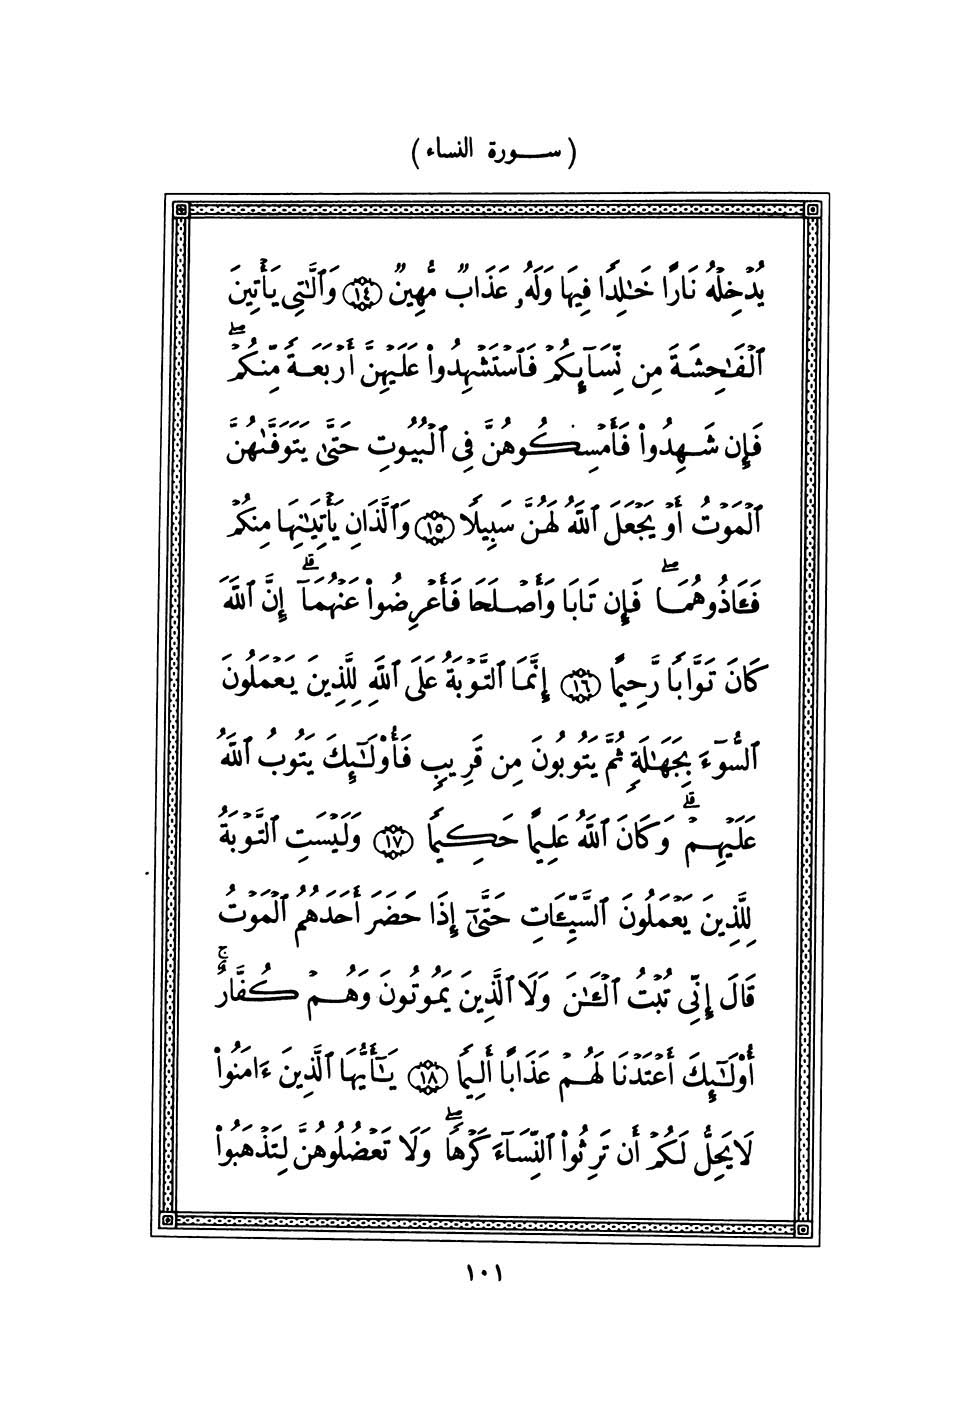 ( ســورة النساء )
يُدْخِلْهُ نَارًا خَٰلِدًا فِيهَا وَلَهُۥ عَذَابٌ مُّهِينٌ ١٤ وَٱلَّٰتِى يَأْتِينَ
ٱلْفَٰحِشَةَ مِن نِّسَآئِكُمْ فَٱسْتَشْهِدُوا۟ عَلَيْهِنَّ أَرْبَعَةً مِّنكُمْ ۖ
فَإِن شَهِدُوا۟ فَأَمْسِكُوهُنَّ فِى ٱلْبُيُوتِ حَتَّىٰ يَتَوَفَّىٰهُنَّ
ٱلْمَوْتُ أَوْ يَجْعَلَ ٱللَّهُ لَهُنَّ سَبِيلًا ١٥ وَٱلَّذَانِ يَأْتِيَٰنِهَا مِنكُمْ
فَـَٔاذُوهُمَا ۖ فَإِن تَابَا وَأَصْلَحَا فَأَعْرِضُوا۟ عَنْهُمَآ ۗ إِنَّ ٱللَّهَ
كَانَ تَوَّابًا رَّحِيمًا ١٦ إِنَّمَا ٱلتَّوْبَةُ عَلَى ٱللَّهِ لِلَّذِينَ يَعْمَلُونَ
ٱلسُّوٓءَ بِجَهَٰلَةٍ ثُمَّ يَتُوبُونَ مِن قَرِيبٍ فَأُو۟لَٰٓئِكَ يَتُوبُ ٱللَّهُ
عَلَيْهِمْ ۗ وَكَانَ ٱللَّهُ عَلِيمًا حَكِيمًا ١٧ وَلَيْسَتِ ٱلتَّوْبَةُ
لِلَّذِينَ يَعْمَلُونَ ٱلسَّيِّـَٔاتِ حَتَّىٰٓ إِذَا حَضَرَ أَحَدَهُمُ ٱلْمَوْتُ
قَالَ إِنِّى تُبْتُ ٱلْـَٰٔنَ وَلَا ٱلَّذِينَ يَمُوتُونَ وَهُمْ كُفَّارٌ ۚ
أُو۟لَٰٓئِكَ أَعْتَدْنَا لَهُمْ عَذَابًا أَلِيمًا ١٨ يَٰٓأَيُّهَا ٱلَّذِينَ ءَامَنُوا۟
لَا يَحِلُّ لَكُمْ أَن تَرِثُوا۟ ٱلنِّسَآءَ كَرْهًا ۖ وَلَا تَعْضُلُوهُنَّ لِتَذْهَبُوا۟
١٠١